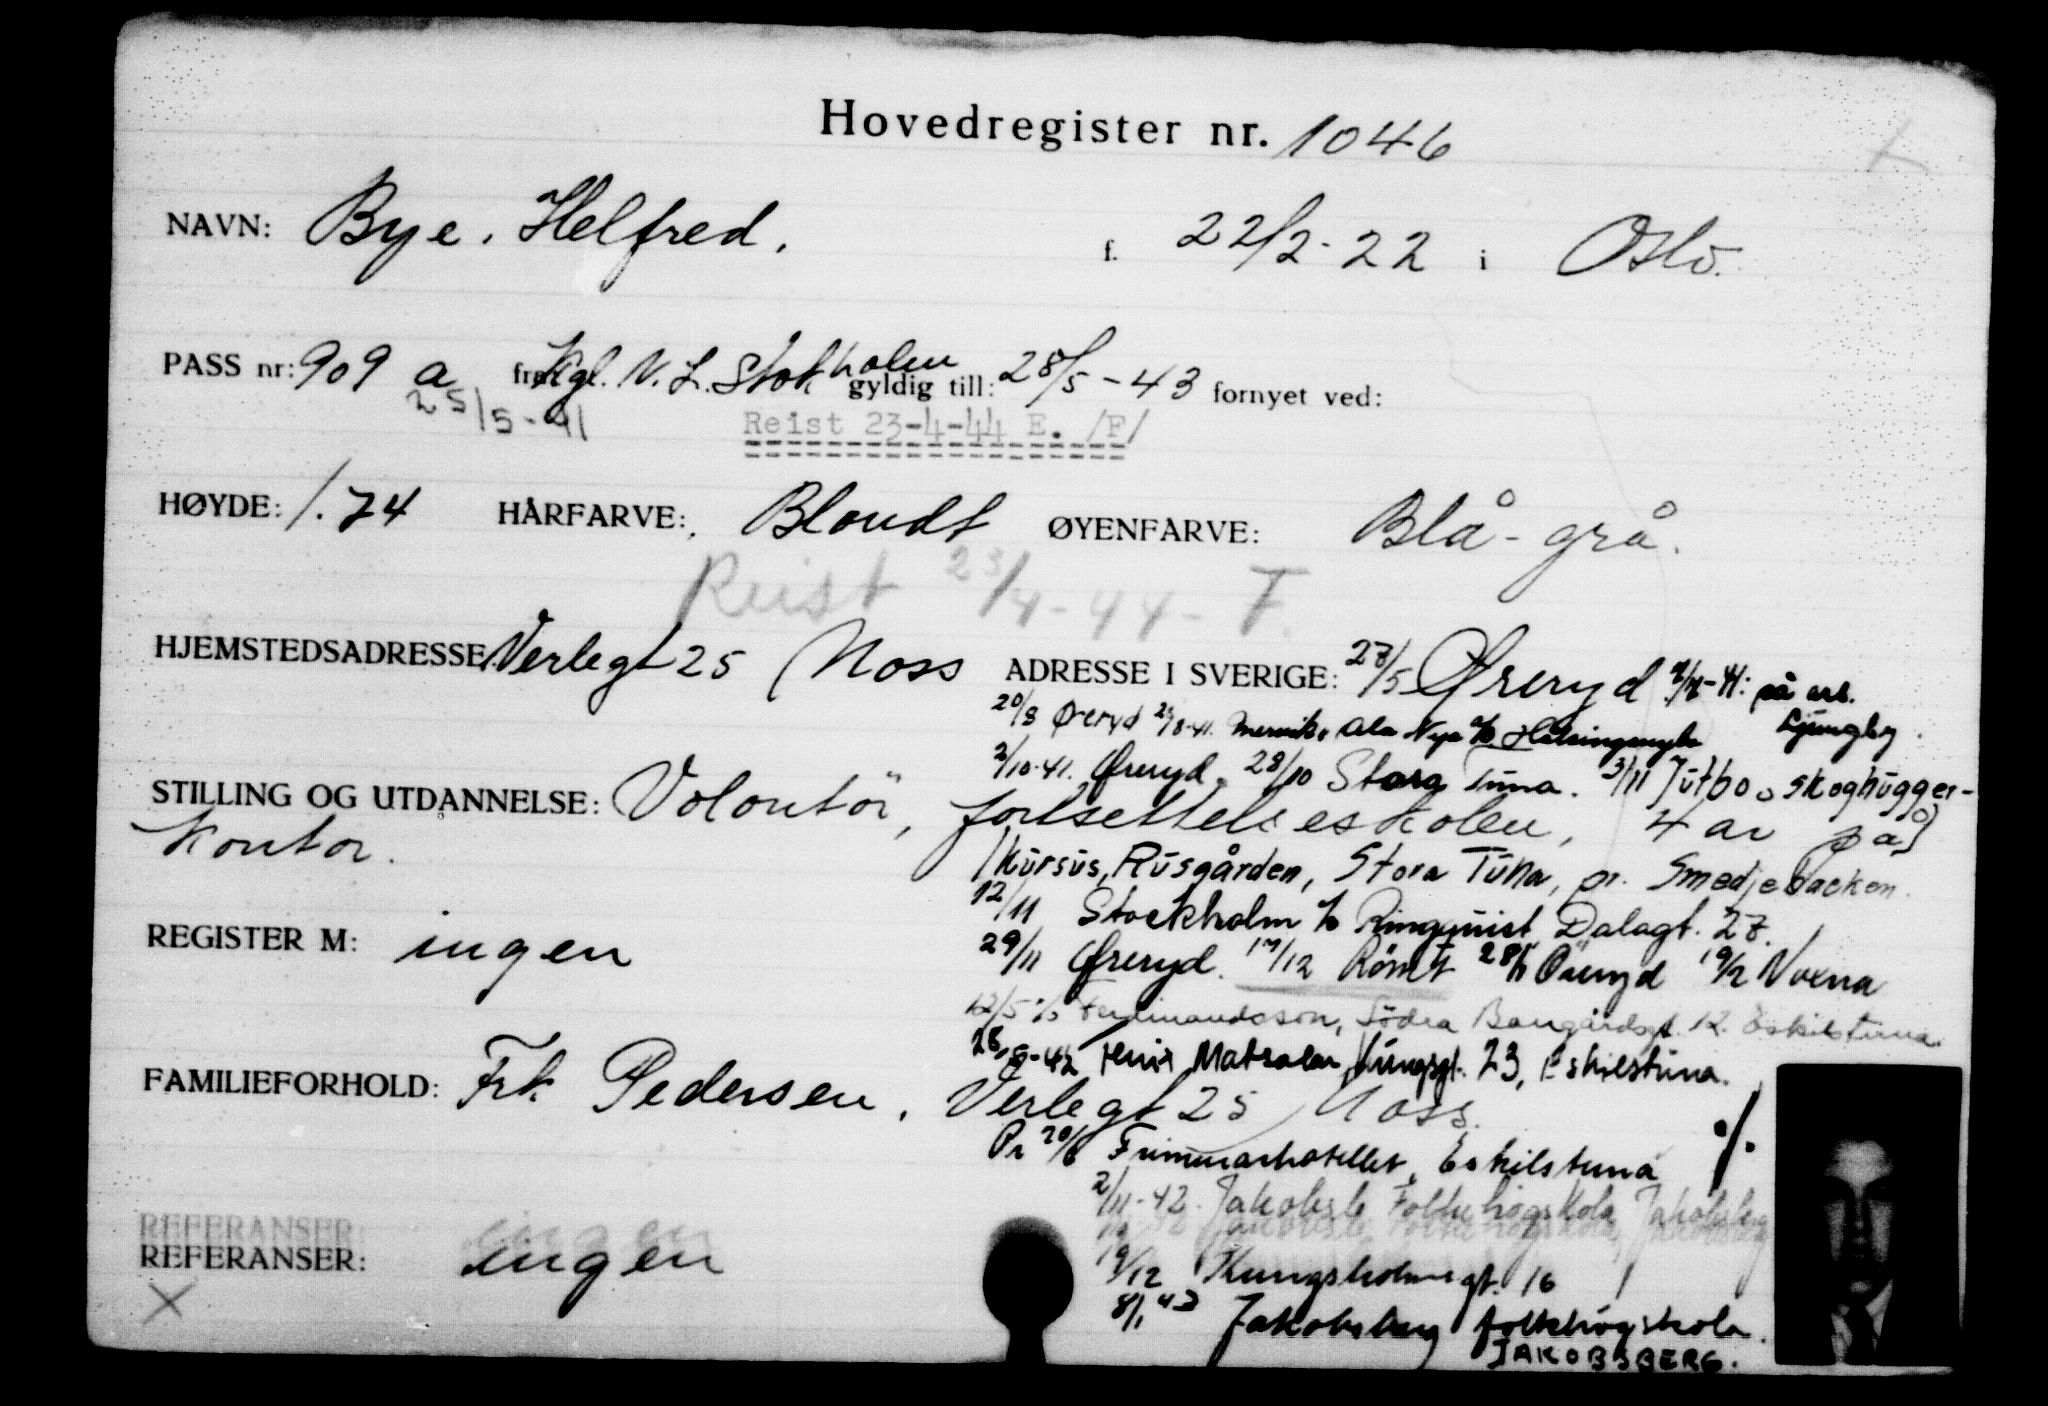 Hovedregister nr. 1046
NAVN: Bye. Helfred. f. 22/2-22 i Oslo.
PASS nr: 909 a fra Kgl. N. L. Stokholm gyldig till: 28/5-43 fornyet ved:
25/5-41
Reist 23-4-44 E. /F/
HØYDE: 1.74 HÅRFARVE: Blondt ØYENFARVE: Blå-grå.
Reist 23/4-44- F.
HJEMSTEDSADRESSE Verlegt 25 Moss ADRESSE I SVERIGE: 27/5 Øreryd på arb. Ljungby.
20/8 Øreryd Ala Nya
2/10-41. Øreryd. 28/10 Stora Tuna. 3/11 Jutbo. skoghugger-
STILLING OG UTDANNELSE: Volontør, fortsettelseskolen, 4 år på
kontor.
kursus, Rusgården, Stora Tuna, pr. Smedjebacken.
12/11 Stockholm c/o Ringquist Dalagt. 27.
REGISTER M: ingen
29/11 Øreryd. 17/12 Rømt 28/1 Öreryd 19/2 Voxna
12/5 c/o Ferdinandsson, Södra Bangårdsgt. 12. Eskilstuna.
Matsalar, Kungsgt. 23, Eskilstuna.
FAMILIEFORHOLD: Frk. Pedersen, Verlegt 25, Moss.
Pr 20/6 Frimurarhotellet, Eskilstuna ./.
2/11-42. Jakobsb. Folkehøgskola, Jakobsberg
REFERANSER:
REFERANSER: ingen
19/12 Kungsholmsgt. 16
8/1 43 Jakobsberg folkhögskola.
JAKOBSBERG.